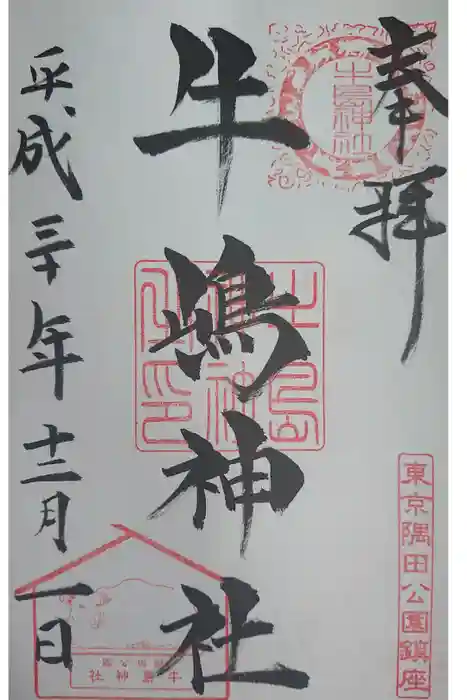 奉拝
東京隅田公園鎮座
牛島神社
牛嶋神社
牛島神社
平成三十年十二月一日
牛島神社